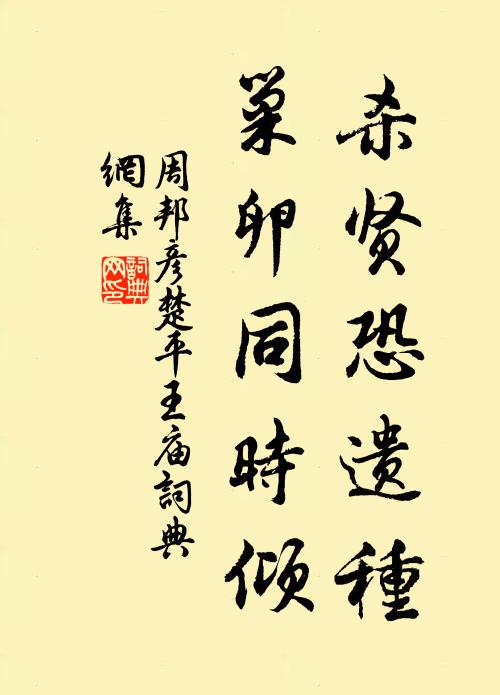 杀贤恐遗種
巢卵同時倾
周邦彦楚平王庙詞典
網集
詞典网印